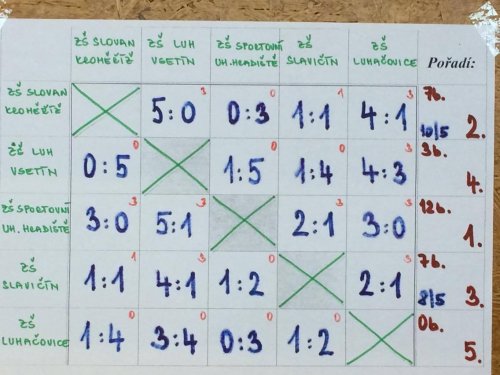 ZŠ SLOVAN KROMĚŘÍŽ
ZŠ LUH VSETÍN
ZŠ SPORTOVNÍ UH. HRADIŠTĚ
ZŠ SLAVIČÍN
ZŠ LUHAČOVICE
Pořadí:
ZŠ SLOVAN KROMĚŘÍŽ
5:0 3
0:3 0
1:1 1
4:1 3
7b. 10/5 2.
ZŠ LUH VSETÍN
0:5 0
1:5 0
1:4 0
4:3 3
3b. 4.
ZŠ SPORTOVNÍ UH. HRADIŠTĚ
3:0 3
5:1 3
2:1 3
3:0 3
12b. 1.
ZŠ SLAVIČÍN
1:1 1
4:1 3
1:2 0
2:1 3
7b. 8/5 3.
ZŠ LUHAČOVICE
1:4 0
3:4 0
0:3 0
1:2 0
0b. 5.